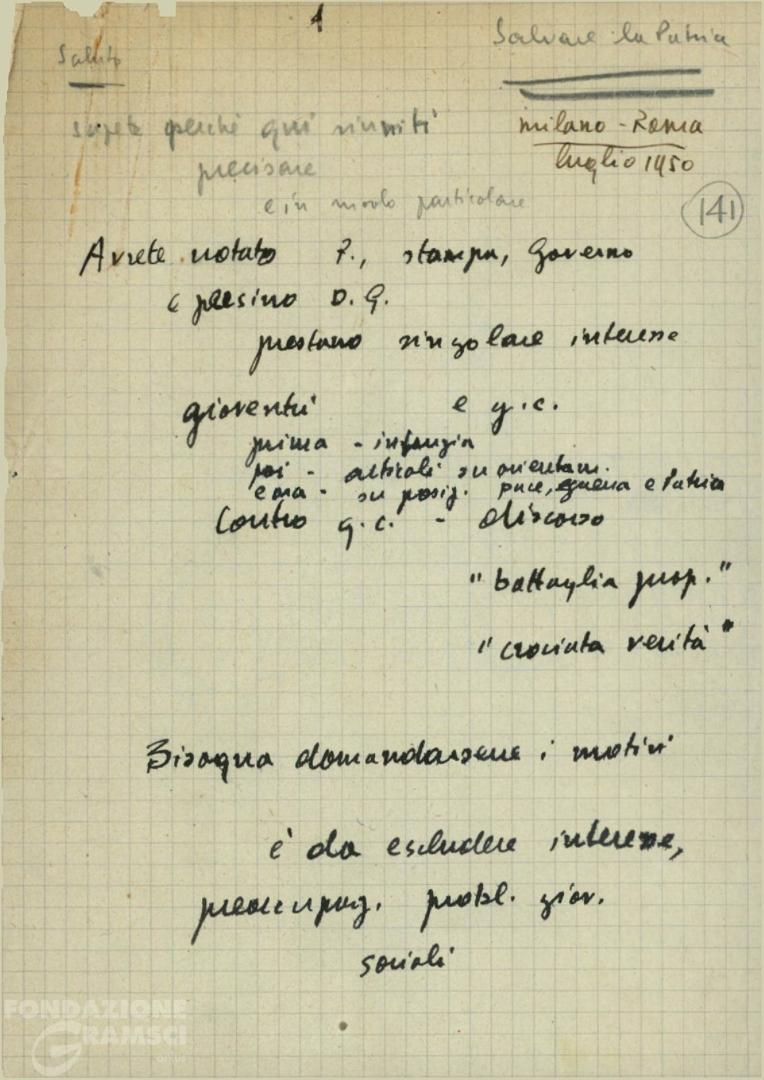 1
Salvare la Patria
Saluto
Milano - Roma
luglio 1950
sapete perché qui riuniti
precisare
e in modo particolare
141
Avrete notato P., stampa, Governo
e persino D. G.
prestano singolare interesse
gioventù e g.c.
prima - infanzia
poi - articoli su orientam.
e ora - su posiz. pace, guerra e Patria
Contro g.c. - discorso
"battaglia prop."
"crociata verità"
Bisogna domandarsene i motivi
è da escludere interesse,
preoccupaz. probl. giov.
sociali
FONDAZIONE
GRAMSCI
onlus